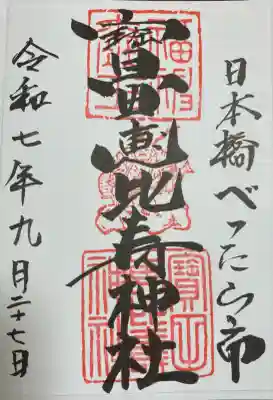 日本橋べったら市
寳田恵比寿神社
令和七年九月二十七日